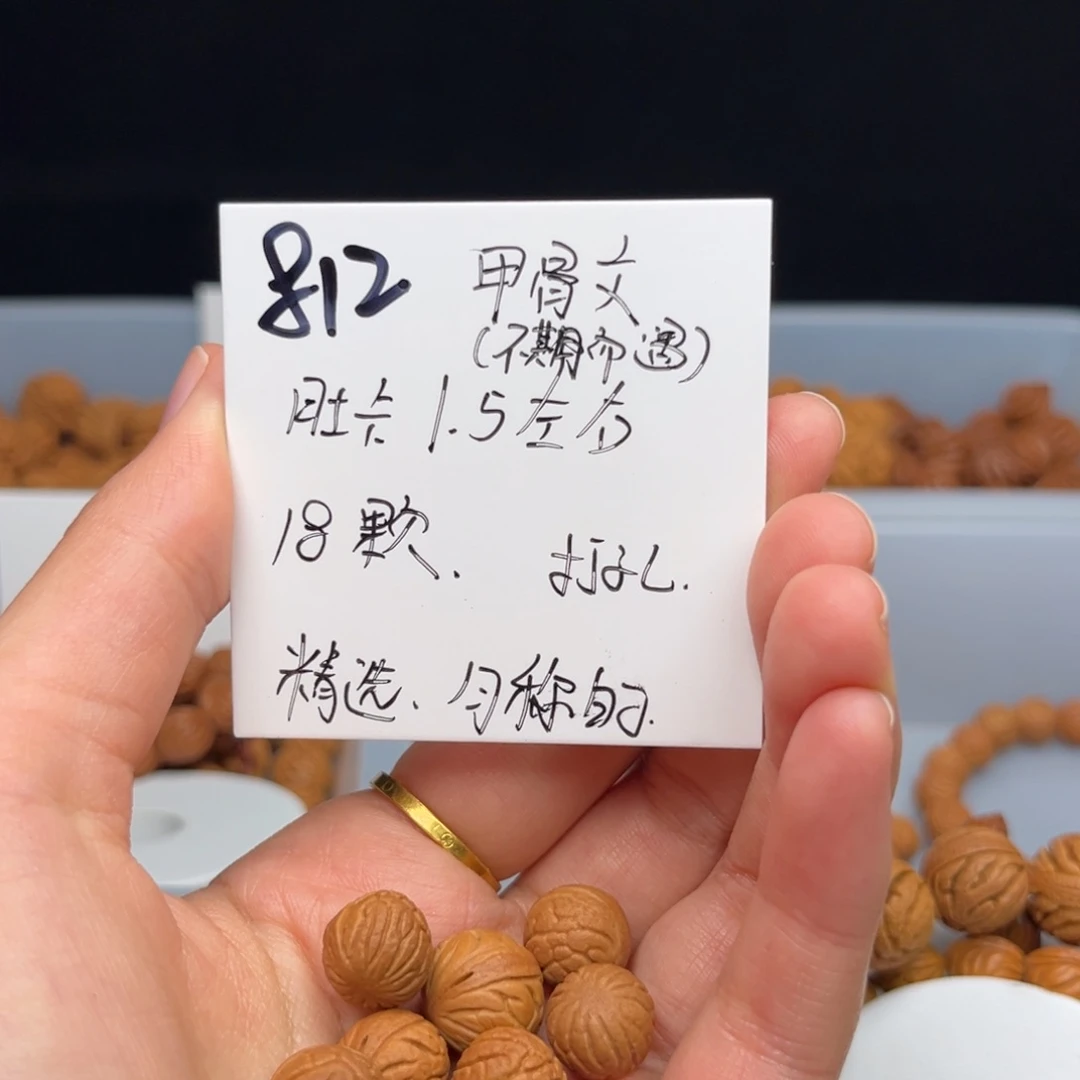 812 甲骨文
(不期而遇)
肚卡 1.5左右
18颗. 打孔.
精选、匀称的.